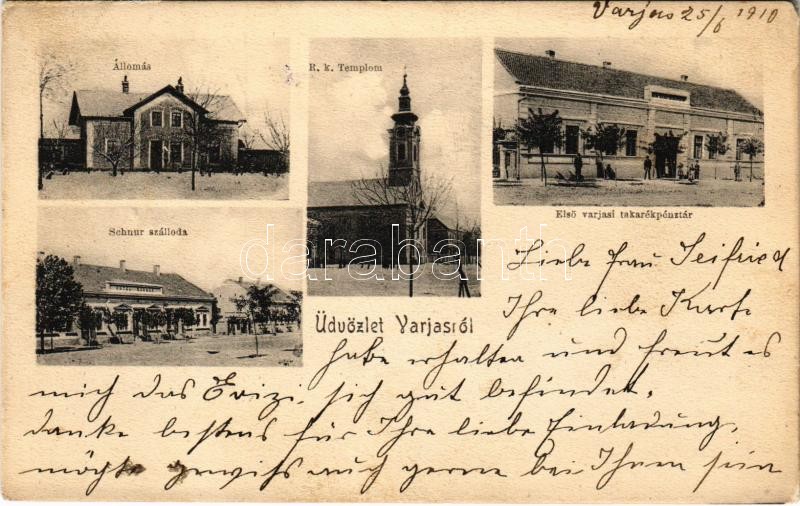 Varjas 25/6 1910
Állomás
R. k. Templom
Első varjasi takarékpénztár
Schnur szálloda
darabanth
Üdvözlet Varjasról
Liebe Frau Seifried
Ihre liebe Karte
habe erhalten und freut es
mich das Erizi sich gut befindet,
danke bestens für Ihre liebe Einladung,
möchte gewiß auch gerne bei Ihnen sein